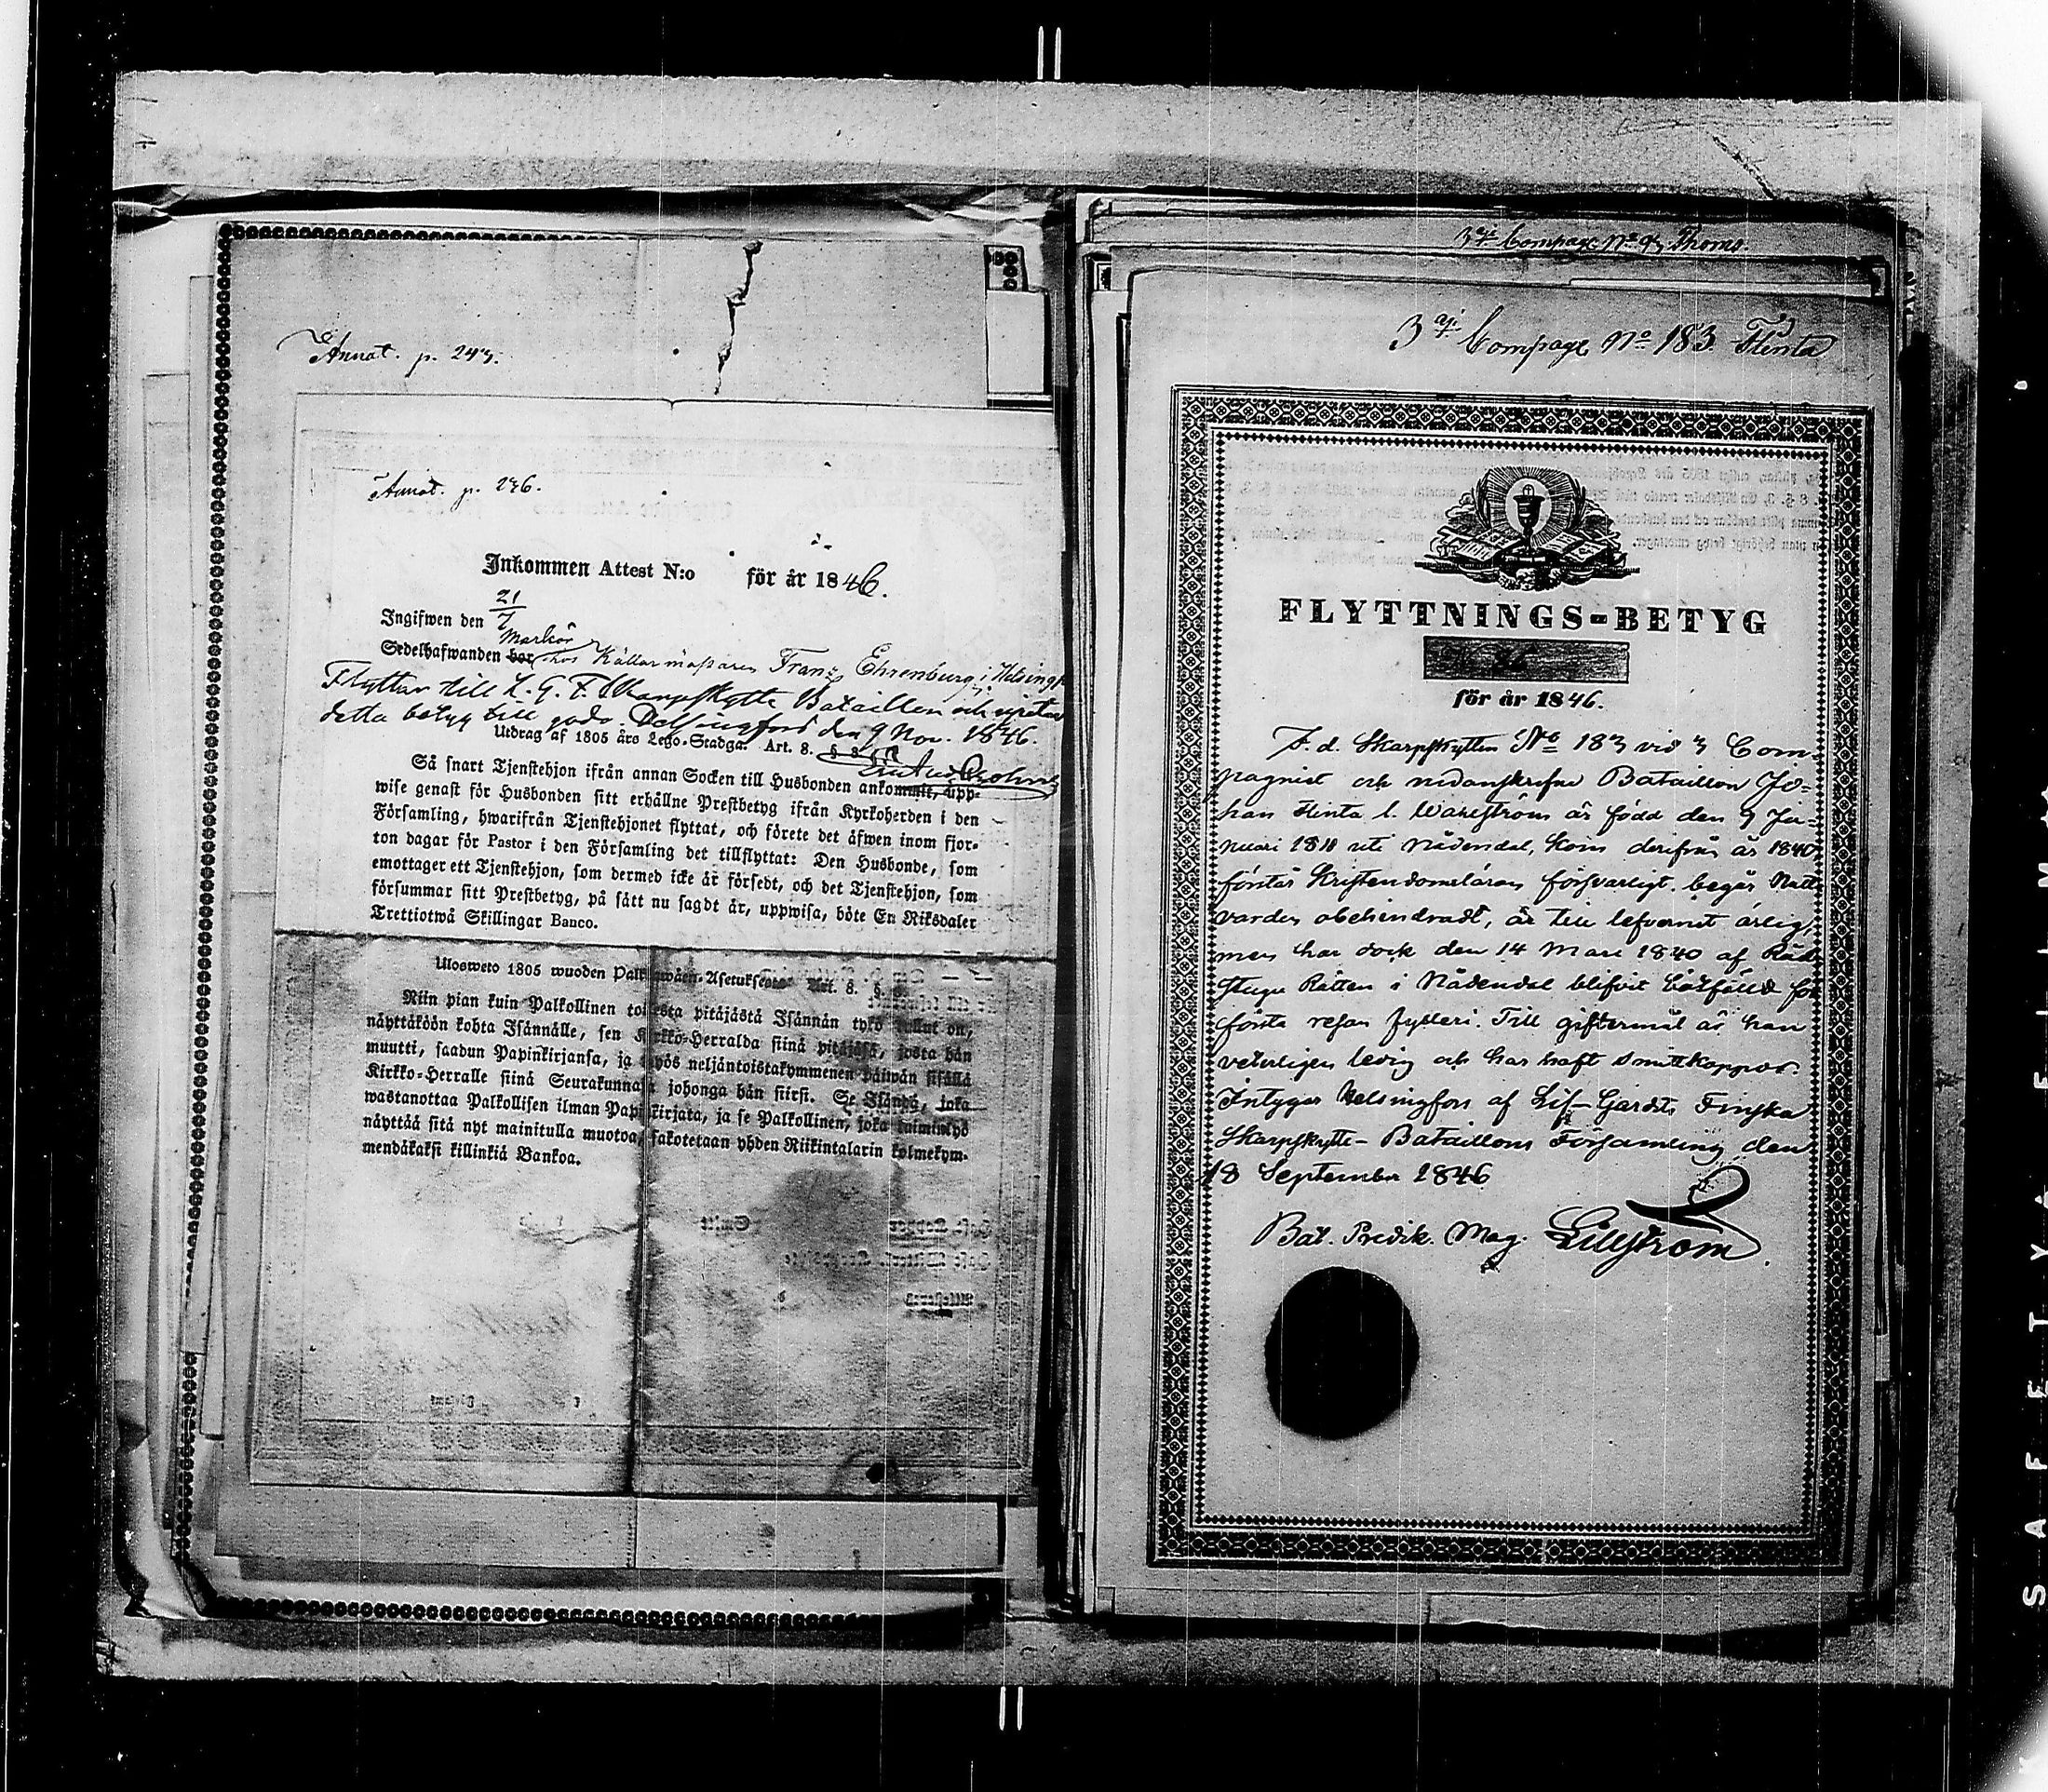 Annot. p. 243.
Annot. p. 236.
Inkommen Attest N:o för år 1846.
Ingifwen den 21/7
Markör
Sedelhafwanden bor hos Källarmästaren Franz Ehrenburg i Helsingf
Flyttar till L. G. F. Skarpskytte Bataillon och
detta betyg till godo. Helsingfors den 9 Nov. 1846.
Utdrag af 1805 års Lego-Stadga. Art. 8. § 8.
Så snart Tjenstehjon ifrån annan Socken till Husbonden ankommit, upp-
wise genast för Husbonden sitt erhållne Prestbetyg ifrån Kyrkoherden i den
Församling, hwarifrån Tjenstehjonet flyttat, och förete det äfwen inom fjor-
ton dagar för Pastor i den Församling det tillflyttat: Den Husbonde, som
emottager ett Tjenstehjon, som dermed icke är försedt, och det Tjenstehjon, som
försummar sitt Prestbetyg, på sätt nu sagdt är, uppwisa, böte En Riksdaler
Trettiotwå Skillingar Banco.
Ulosweto 1805 wuoden Palkowäen-Asetuksesta Art. 8. §
Niin pian kuin Palkollinen toisesta pitäjästä Isännän tykö tullut on,
näyttäköön kohta Isännälle, sen Kirkko-Herralda siinä pitäjäsä, josta hän
muutti, saadun Papinkirjansa, ja myös neljäntoistakymmenen päiwän sisällä
Kirkko-Herralle siinä Seurakunnasa johonga hän siirsi. Se Isändä, joka
wastanottaa Palkollisen ilman Papinkirjata, ja se Palkollinen, joka laiminlyö
näyttää sitä nyt mainitulla muotoa, sakotetaan yhden Riikintalarin kolmekym-
mendäkaksi killinkiä Bankoa.
3dje Compage No 93 Thoms
3dje Compage No 183 Flinta
FLYTTNINGS-BETYG
för år 1846.
F. d. Skarpskytten No 183 vid 3 Com-
pagniet och nedanskrifne Bataillon Jo-
han Flinta l. Wahlström är född den 9 Ja-
nuari 1811 uti Nådendal, kom derifrån år 1840
förstår Kristendomsläran försvarligt, begår Natt-
varden obehindradt, är till lefvernet ärlig,
men har dock den 14 Mars 1840 af Råd-
stugu Rätten i Nådendal blifvit bötfälld för
första resan fylleri. Till giftermål är han
veterligen ledig och har haft smittkoppor.
Intygar Helsingfors af Lif-Gardets Finska
Skarpskytte-Bataillons Församling den
18 September 1846
Bat. Predik. Mag. Lillström
SAFETY FILM